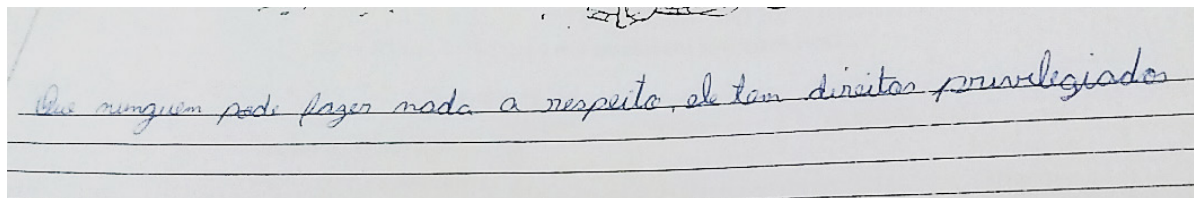 Que ninguem pode fazer nada a respeito, ele tem direitos privilegiados